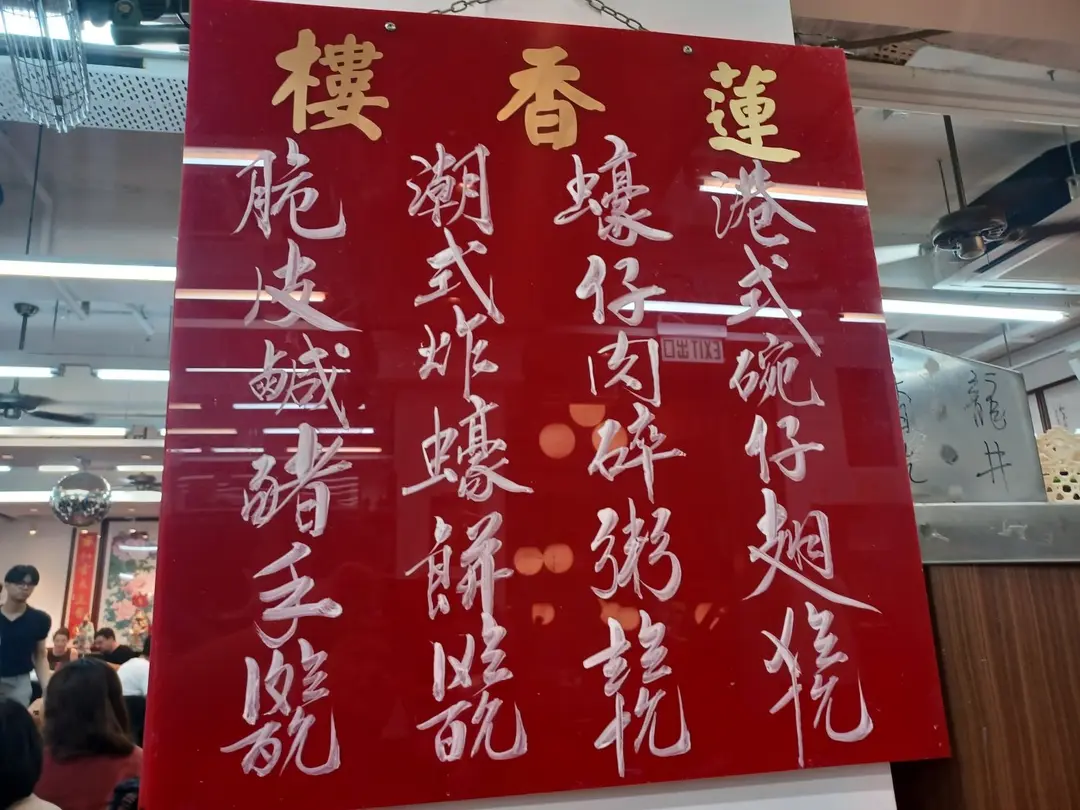 蓮香樓
港式碗仔翅
蠔仔肉碎粥
潮式炸蠔餅
脆皮鹹豬手
出口 EXIT
龍井